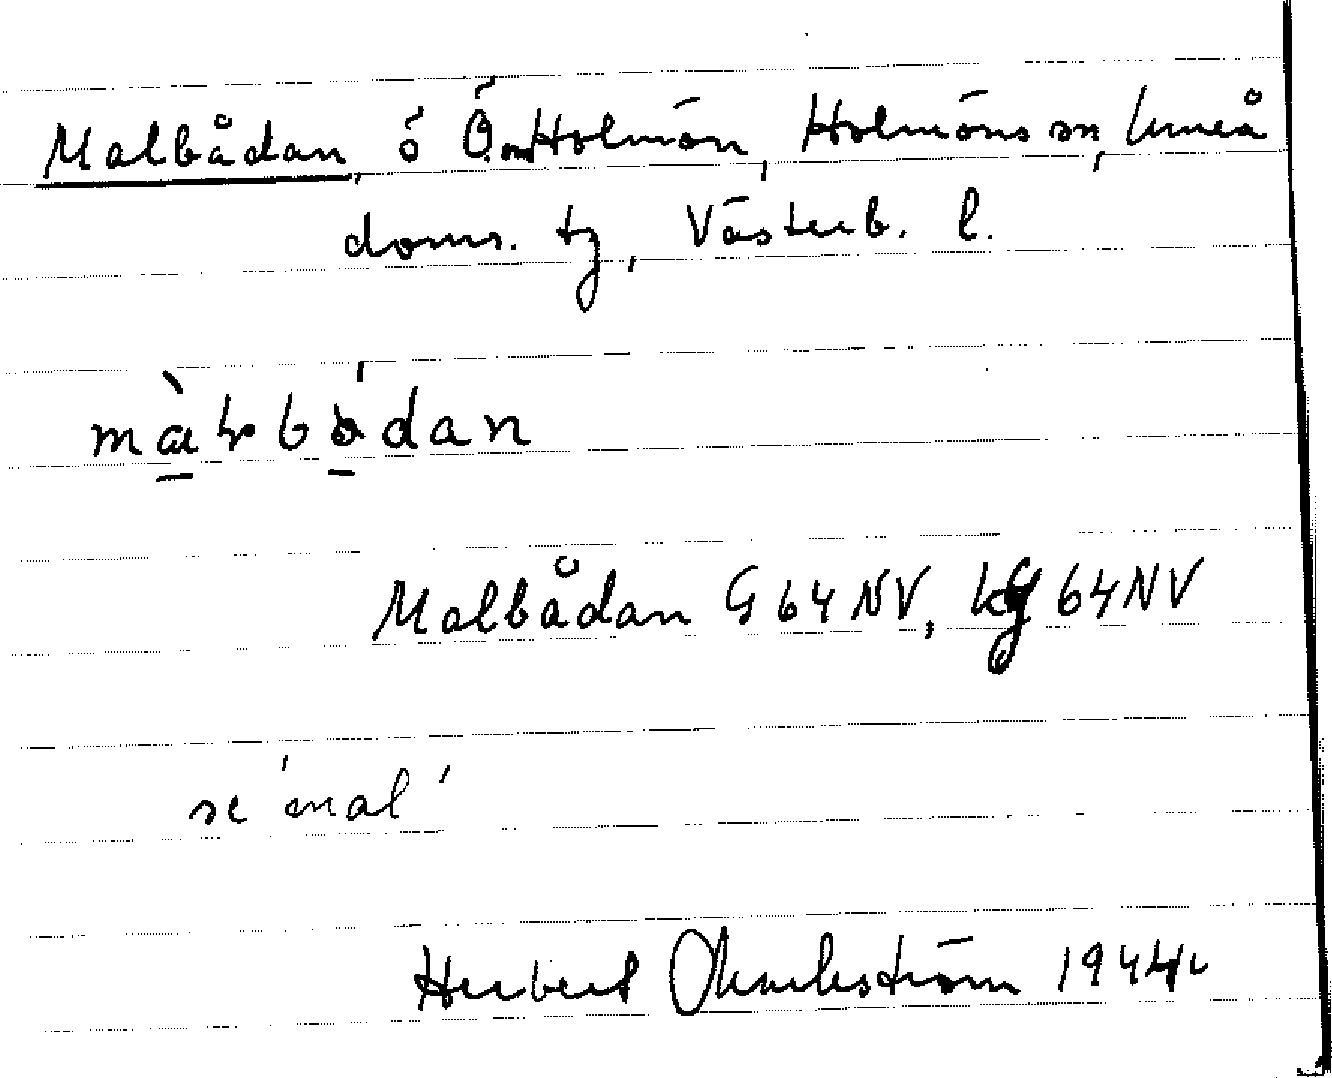 Malbådan, ö Ö. om Holmön, Holmöns sn, Umeå
doms. tg, Västerb. l.
màɽbòdan
Malbådan G 64 NV, kg 64 NV
se 'mal'
Herbert Markström 1944